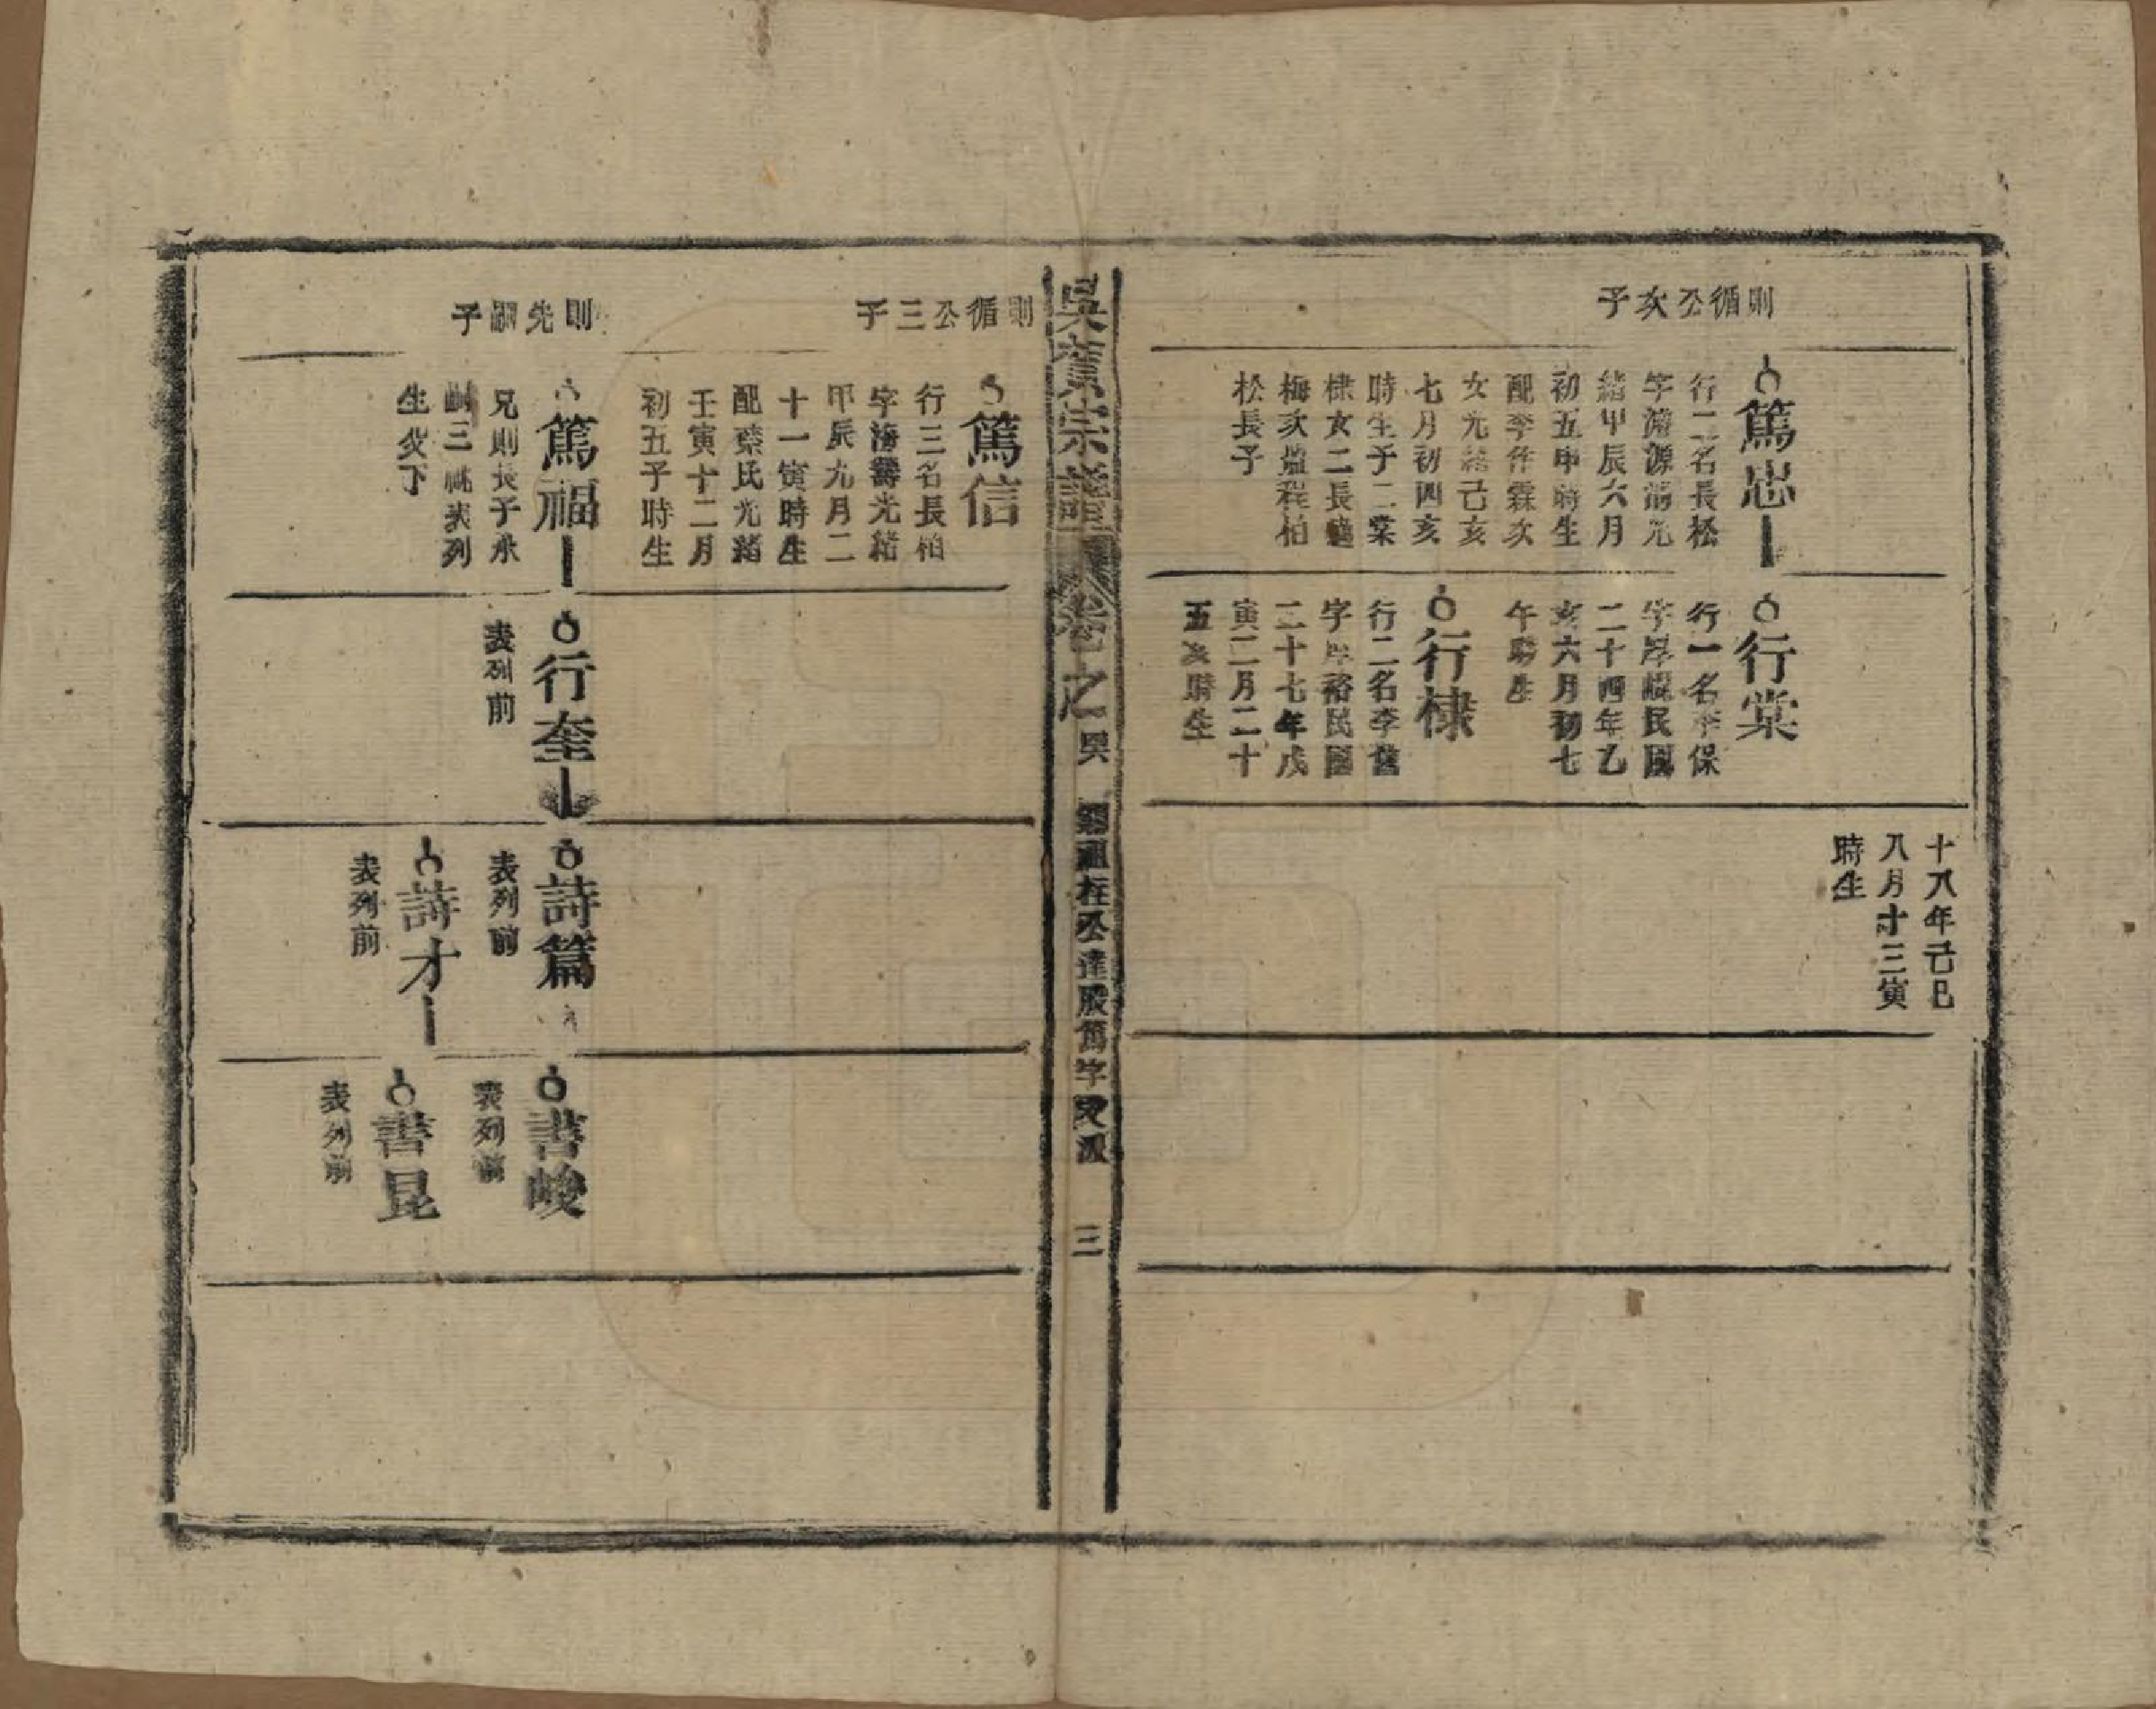 則循公次子
篤忠
行二名長松
字源清光
緒甲辰六月
初五申時生
配李作霖次
女光緒己亥
七月初四亥
時生子二棠
棣女二長適
梅次適程柏
松長子
行棠
行一名李保
字厚民國
二十四年乙
亥六月初七
午時生
行棣
行二名李舊
字厚裕民國
二十七年戊
寅二月二十
五亥時生
十八年己巳
八月十三寅
時生
吳舊宗譜
卷之
祖柱公達股簡字文派
三
則循公三子
篤信
行三名長柏
字海壽光緒
甲辰九月二
十一寅時生
配蔡氏光緒
壬寅十二月
初五子時生
則先嗣子
篤福
兄則長子承
嗣三祧表列
生父下
行奎
表列前
詩篇
表列前
詩才
表列前
書峻
表列前
書昆
表列前